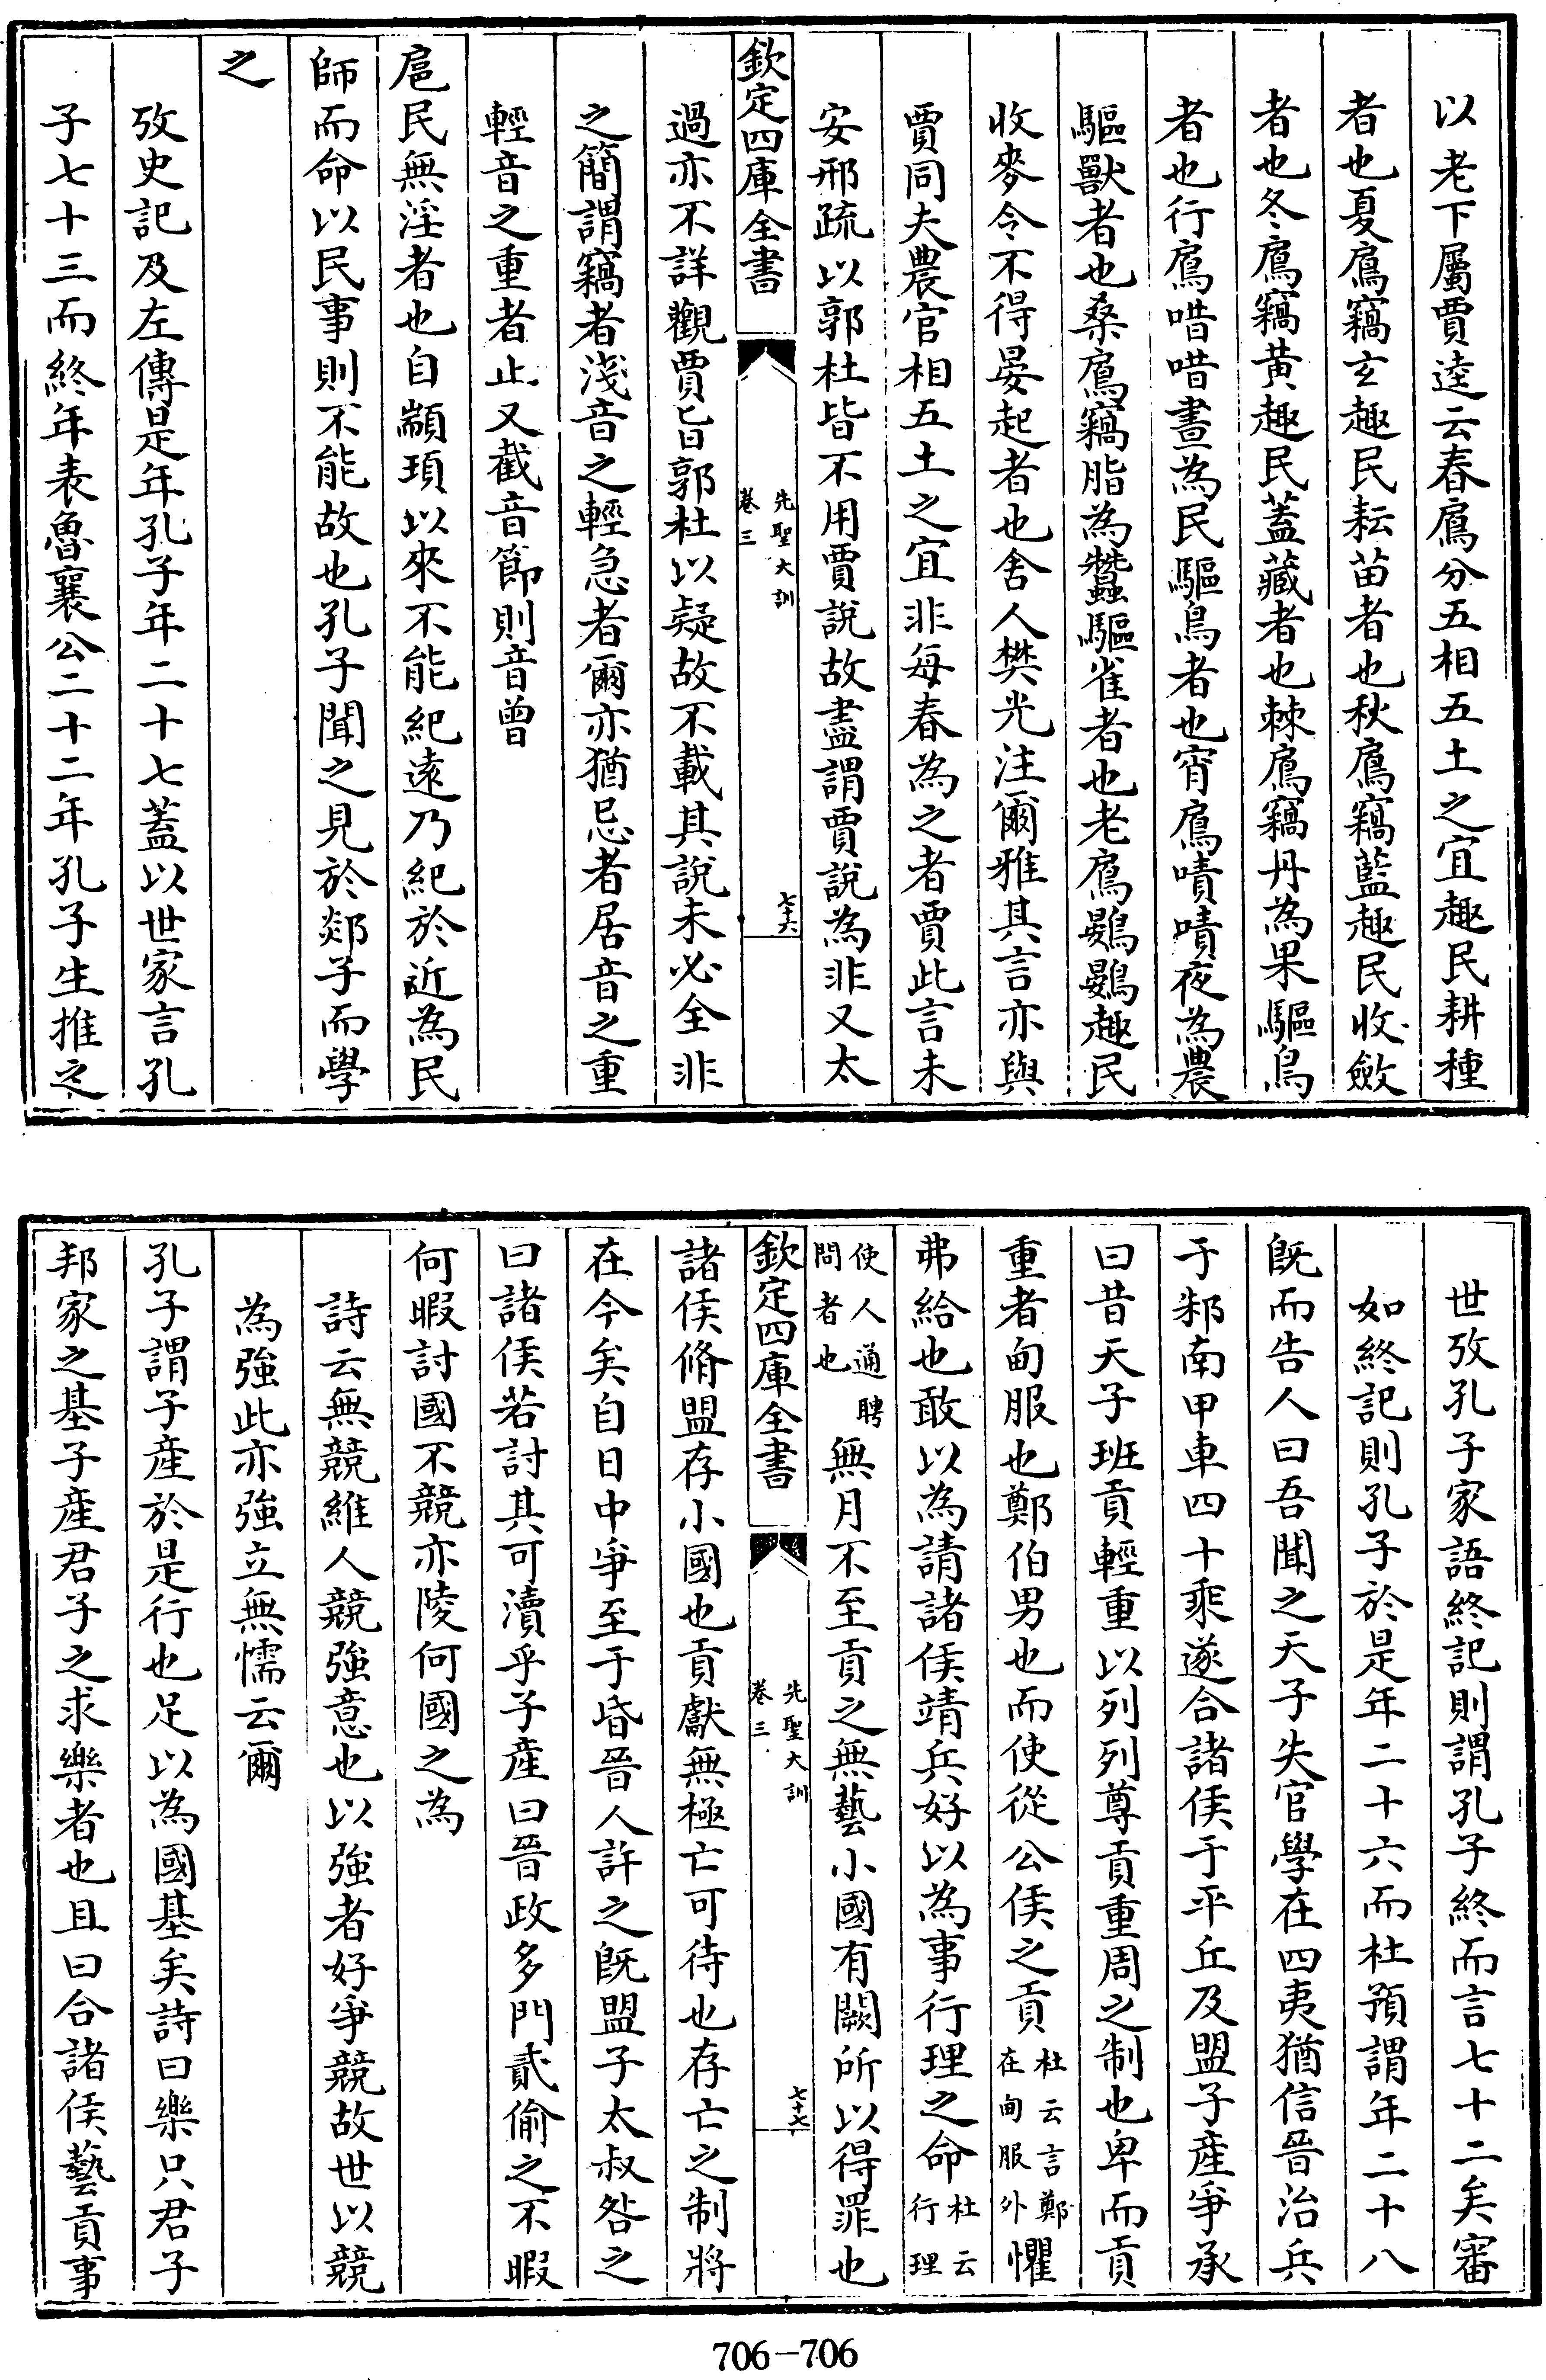 以老下屬賈逵云春鳸分五相五土之宜趣民耕種
者也夏鳸竊玄趣民耘苗者也秋鳸竊藍趣民收斂
者也冬鳸竊黃趣民蓋藏者也棘鳸竊丹為果驅鳥
者也行鳸唶唶晝為民驅鳥者也宵鳸嘖嘖夜為農
驅獸者也桑鳸竊脂為蠶驅雀者也老鳸鷃鷃趣民
收麥令不得晏起者也舍人樊光注爾雅其言亦與
賈同夫農官相五土之宜非每春為之者賈此言未
安邢疏以郭杜皆不用賈說故盡謂賈說為非又太
欽定四庫全書
先聖大訓
卷三
七十六
過亦不詳觀賈旨郭杜以疑故不載其說未必全非
之簡謂竊者淺音之輕急者爾亦猶忌者居音之重
輕音之重者止又截音節則音曾
扈民無淫者也自顓頊以來不能紀遠乃紀於近為民
師而命以民事則不能故也孔子聞之見於郯子而學
之
攷史記及左傳是年孔子年二十七蓋以世家言孔
子七十三而終年表魯襄公二十二年孔子生推之
世攷孔子家語終記則謂孔子終而言七十二矣審
如終記則孔子於是年二十六而杜預謂年二十八
既而告人曰吾聞之天子失官學在四夷猶信晉治兵
于邾南甲車四十乘遂合諸侯于平丘及盟子產爭承
曰昔天子班貢輕重以列列尊貢重周之制也卑而貢
重者甸服也鄭伯男也而使從公侯之貢杜云言鄭在甸服外懼
弗給也敢以為請諸侯靖兵好以為事行理之命杜云行理
使人通聘問者也無月不至貢之無藝小國有闕所以得罪也
欽定四庫全書
先聖大訓
卷三
七十七
諸侯脩盟存小國也貢獻無極亡可待也存亡之制將
在今矣自日中爭至于昏晉人許之既盟子太叔咎之
曰諸侯若討其可瀆乎子產曰晉政多門貳偷之不暇
何暇討國不競亦陵何國之為
詩云無競維人競強意也以強者好爭競故世以競
為強此亦強立無懦云爾
孔子謂子產於是行也足以為國基矣詩曰樂只君子
邦家之基子產君子之求樂者也且曰合諸侯藝貢事
706-706